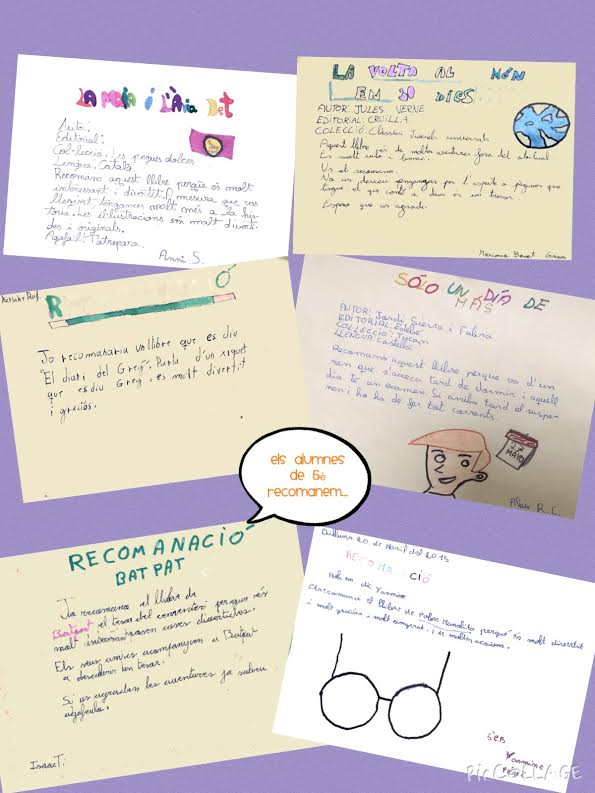 LA MÀGIA i L'Àvia Bet
Autor:
Editorial:
Col·lecció: Les peques dolces
Lengua: Català
Recomano aquest llibre perquè és molt
interessant i divertit. A mesura que vas
llegint, t'enganxes molt més a la his-
tòria. Les il·lustracions són molt diverti-
des i originals.
Agafa'l! T'atrapara.
Anni S.
LA VOLTA AL MÓN
EN 80 DIES
AUTOR: JULES VERNE
EDITORIAL: CRUÏLLA
COLECCIÓ: Clàssics Juvenils universals
Aquest llibre de moltes aventures fora del
Es molt xulo i bonic.
Us el recomano.
No us deixeu enganyar per l'aspecte a pàgines que
tingue el que conte a dens es un tresor.
Espero que us agrade.
Mariona Benet
R Ó
Jo recomanaria un llibre que es diu
"El diari del Greg". Parla d'un xiquet
que es diu Greg i és molt divertit
i graciós.
SÓLO UN DÍA DE
MÁS
AUTOR: Jordi Sierra i Fabra
EDITORIAL: Edebé
COLLECCIÓ: Tucan
LLENGUA: castellà
Recomano aquest llibre perque va d'un
nen que s'aixeca tard de dormir i aquell
dia te un examen. Si arriba tard el suspe-
nen i ho ha de fer tot corrents.
27
MAIO
R. C.
els alumnes
de 5è
recomanem...
RECOMANACIÓ
BAT PAT
Jo recomano el llibre de
Batpat el tresor del cementiri perque és
molt interesant pasen coses divertides.
Els seus amics acompanyen a Batpat
a descobrir un tresor.
Si us agraden les aventures ja sabeu
agafeulo.
Isaac T.
Dilluns 20 de Abril del 2015
RECOMANACIÓ
Hola em dic Yasmine
Us recomano el llibre de Pobre Manolito perque és molt divertit
i molt graciós i molt exagerat i de moltes accions.
5èB
Yasmine
PicCOLLAGE